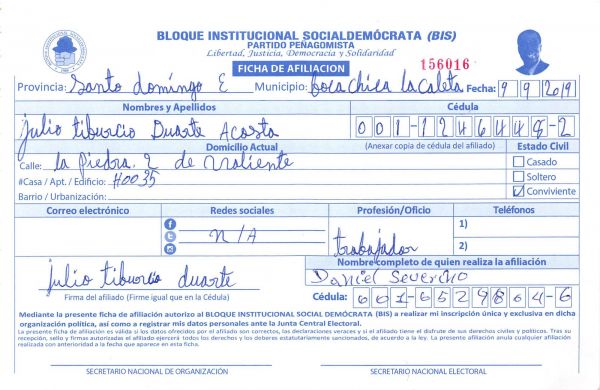 BLOQUE INSTITUCIONAL SOCIALDEMÓCRATA (BIS)
PARTIDO PEÑAGOMISTA
Libertad, Justicia, Democracia y Solidaridad
FICHA DE AFILIACION
156016
Provincia: Santo domingo E Municipio: boca chica la caleta Fecha: 9 9 2019
Nombres y Apellidos Cédula
Julio tiburcio Duarte Acosta 001-1246448-2
Domicilio Actual (Anexar copia de cédula del afiliado) Estado Civil
Calle: la Piedra 2 de Maliente Casado
#Casa / Apt. / Edificio: #0035 Soltero
Barrio / Urbanización: Conviviente
Correo electrónico Redes sociales Profesión/Oficio Teléfonos
N/A trabajador 1)
2)
Nombre completo de quien realiza la afiliación
Julio tiburcio duarte Daniel
Firma del afiliado (Firme igual que en la Cédula) Cédula: 001-6529864-6
Mediante la presente ficha de afiliación autorizo al BLOQUE INSTITUCIONAL SOCIAL DEMÓCRATA (BIS) a realizar mi inscripción única y exclusiva en dicha
organización política, así como a registrar mis datos personales ante la Junta Central Electoral.
La presente ficha de afiliación es válida si los datos ofrecidos por el afiliado son correctos, las declaraciones veraces y si el afiliado tiene el disfrute de sus derechos civiles y políticos. Tras su
recepción, sello y firmas autorizadas el afiliado ejercerá todos los derechos y los deberes estatutariamente sancionados, de acuerdo a la ley. La presente afiliación anula cualquier afiliación
realizada con anterioridad a la fecha que aparece en esta ficha.
SECRETARIO NACIONAL DE ORGANIZACIÓN SECRETARIO NACIONAL ELECTORAL